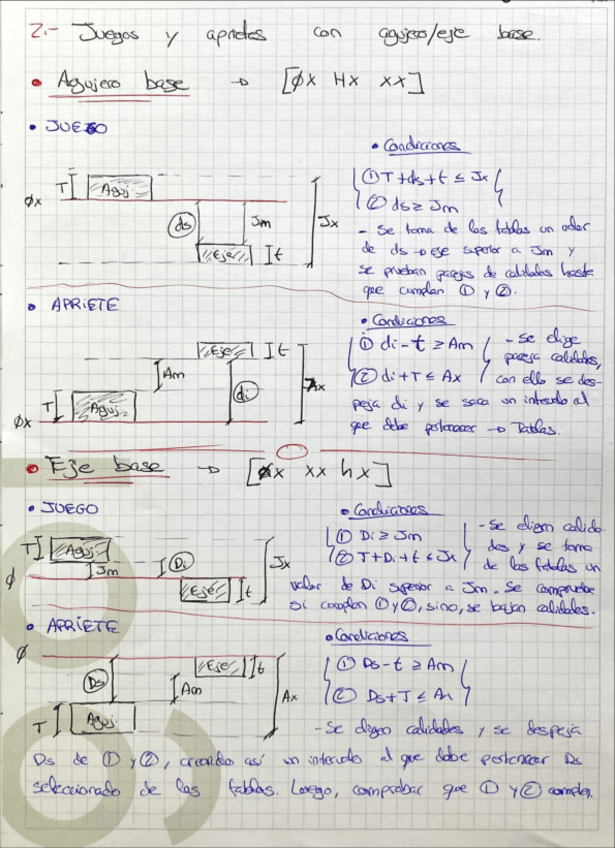 2.- Juegos y aprietes con agujero/eje base.
• Agujero base → [ϕx Hx xx]
• JUEGO
• Condiciones
① T+ds+t ≤ Jx
② ds ≥ Jm
- Se toma de las tablas un valor
de ds → ese superior a Jm y
se prueban parejas de calidades hasta
que cumplan ① y ②.
T
Aguj.
ϕx
ds
Jm
Jx
Eje
t
• APRIETE
• Condiciones
① di-t ≥ Am
② di+T ≤ Ax
- Se elige
pareja calidades,
con ello se des-
peja di y se saca un intervalo al
que debe pertenecer → Tablas.
Eje
t
Am
Ax
T
Aguj.
di
ϕx
• Eje base → [ϕx xx hx]
• JUEGO
• Condiciones
① Di ≥ Jm
② T+Di+t ≤ Jx
- Se eligen calida
des y se toma
de las tablas un
valor de Di superior a Jm. Se comprueba
si cumplen ① y ②, sino, se bajan calidades.
T
Aguj.
Jm
Di
Jx
ϕ
Eje
t
• APRIETE
• Condiciones
① Ds-t ≥ Am
② Ds+T ≤ Ax
ϕ
Eje
t
Ds
Am
Ax
T
Aguj.
- Se eligen calidades y se despeja
Ds de ① y ②, creando así un intervalo al que debe pertenecer Ds
seleccionado de las tablas. Luego, comprobar que ① y ② cumplen.